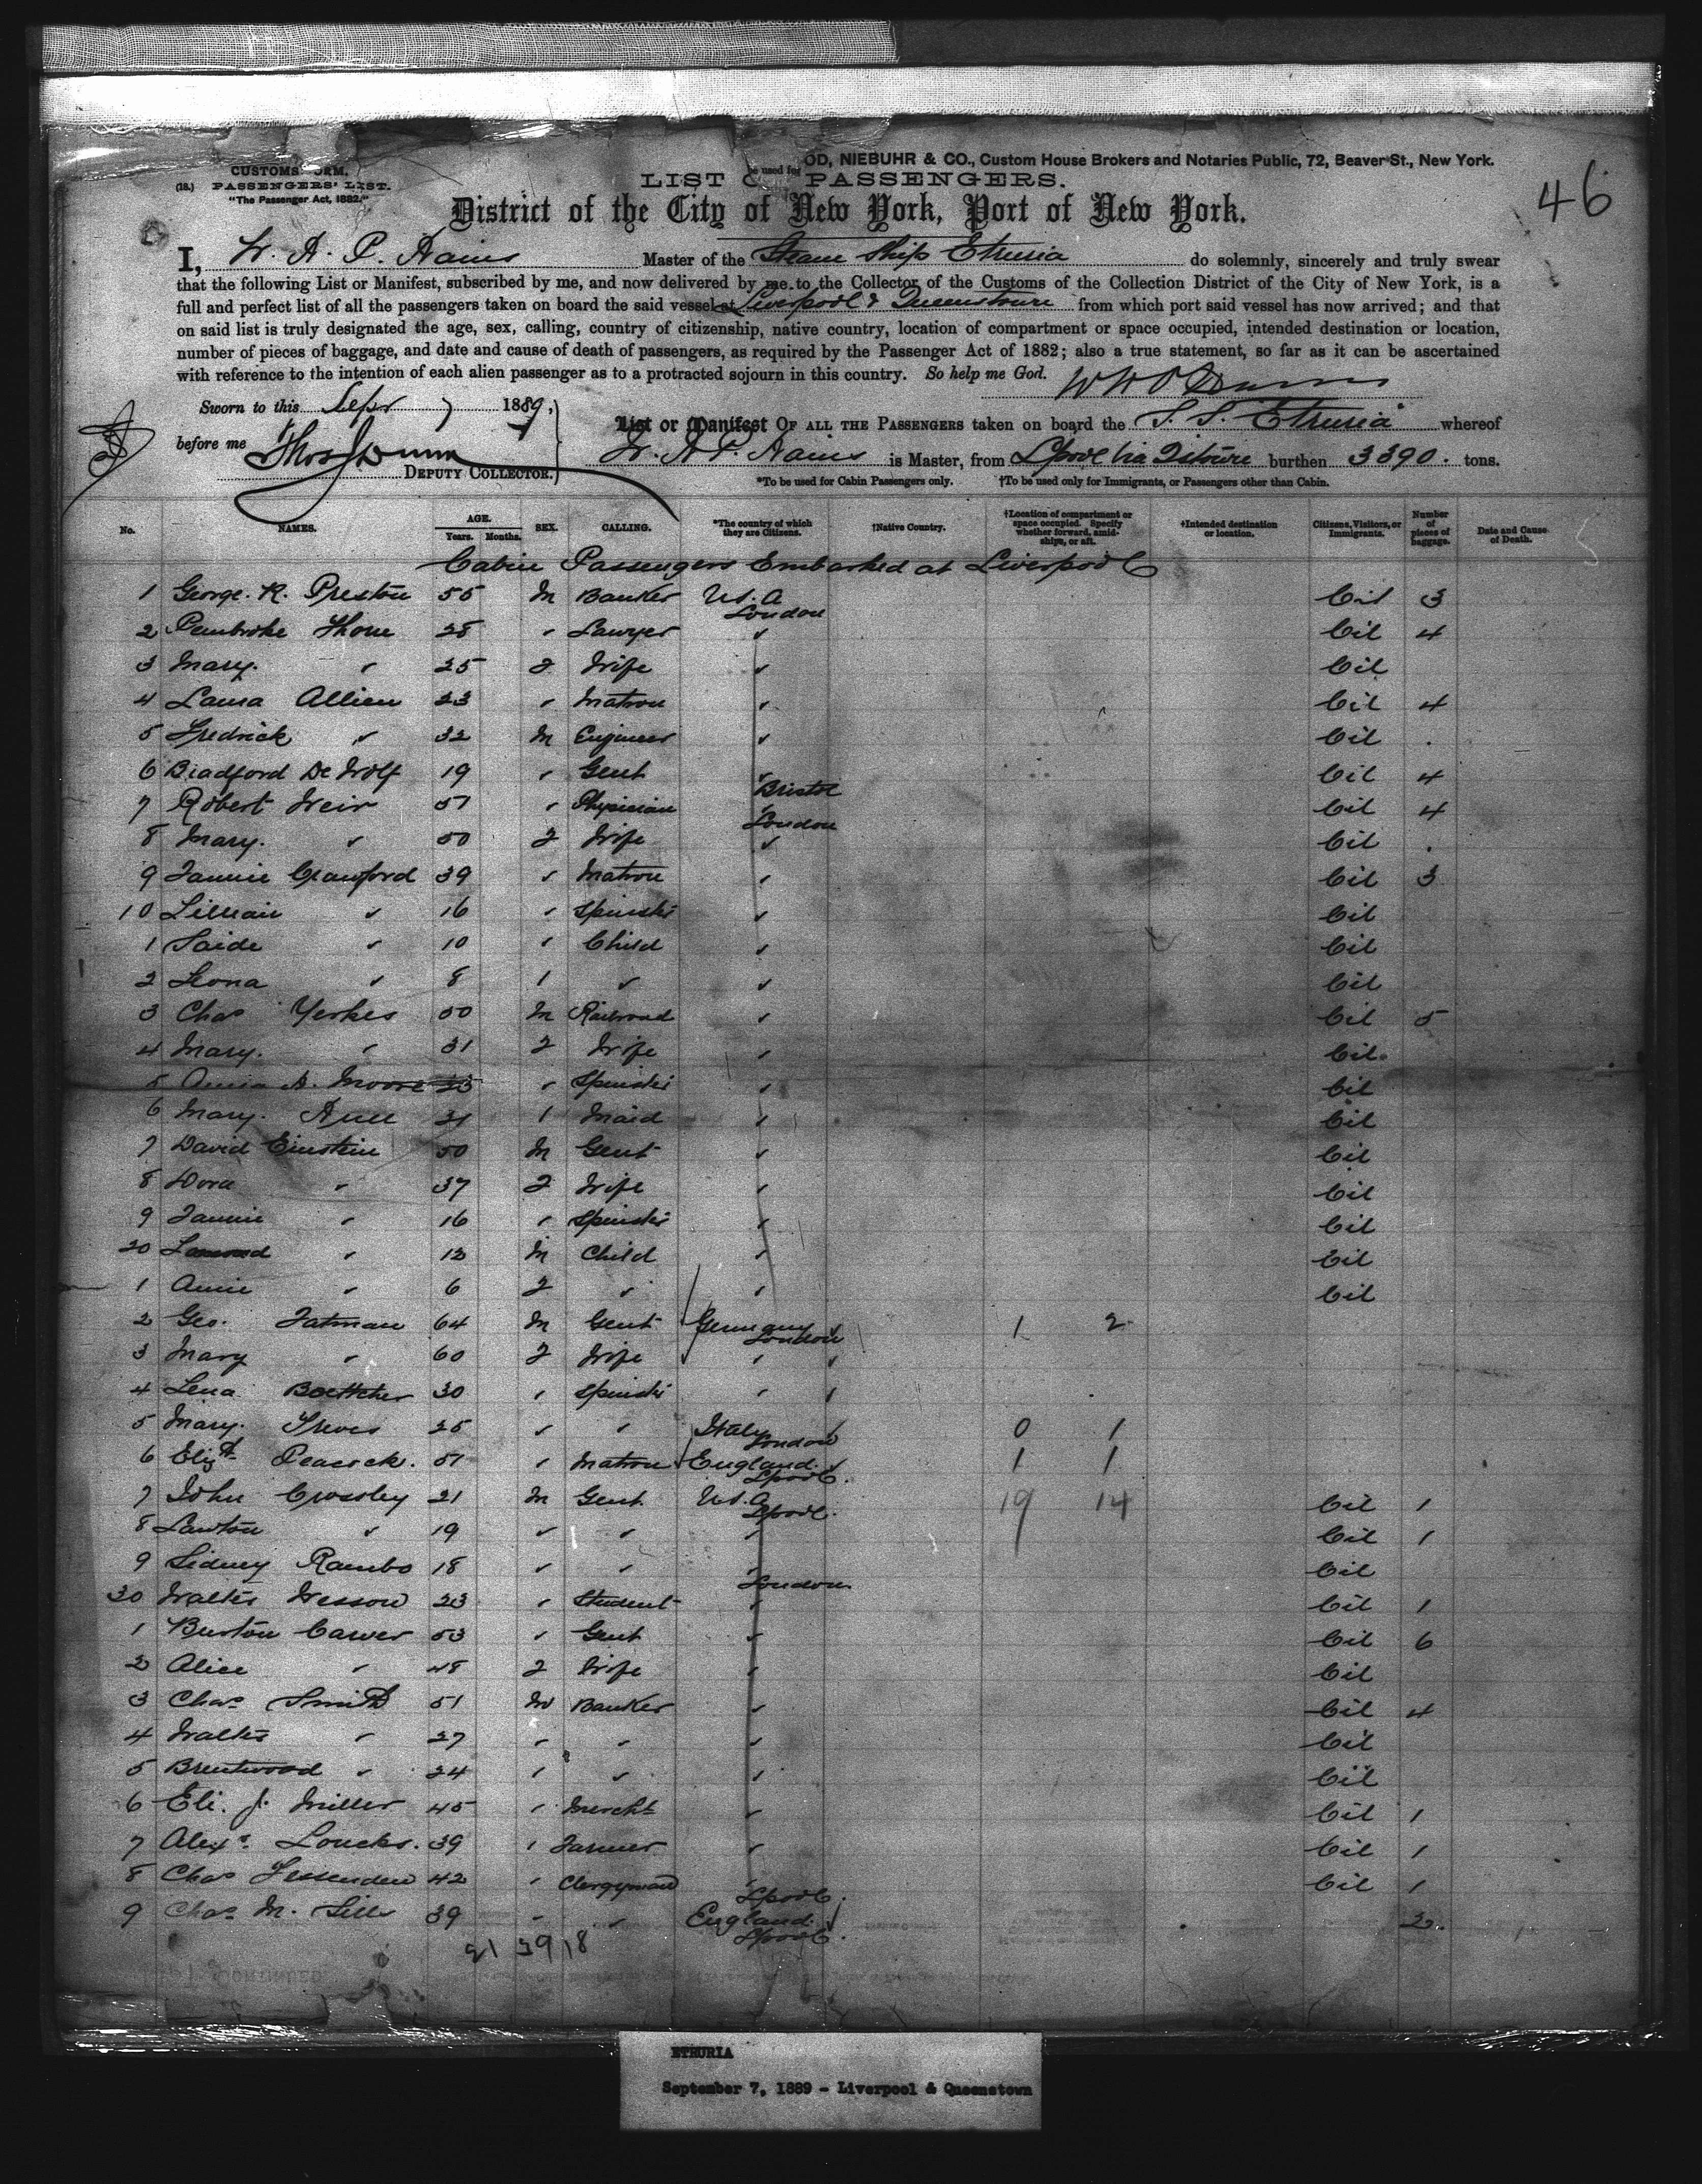 OD, NIEBUHR & CO., Custom House Brokers and Notaries Public, 72, Beaver St., New York.
CUSTOMS ORM,
(18.) PASSENGERS' LIST.
"The Passenger Act, 1882."
be used for
LIST PASSENGERS.
46
District of the City of New York, Port of New York.
I, W. H. P. Hains Master of the Steam Ship Etruria do solemnly, sincerely and truly swear
that the following List or Manifest, subscribed by me, and now delivered by me to the Collector of the Customs of the Collection District of the City of New York, is a
full and perfect list of all the passengers taken on board the said vessel at Liverpool & Queenstown from which port said vessel has now arrived; and that
on said list is truly designated the age, sex, calling, country of citizenship, native country, location of compartment or space occupied, intended destination or location,
number of pieces of baggage, and date and cause of death of passengers, as required by the Passenger Act of 1882; also a true statement, so far as it can be ascertained
with reference to the intention of each alien passenger as to a protracted sojourn in this country. So help me God.
Sworn to this Sepr 7 1889,
before me
DEPUTY COLLECTOR.
List or Manifest OF ALL THE PASSENGERS taken on board the S.S. "Etruria" whereof
W. H. P. Hains is Master, from Lpool via Qtown burthen 3390. tons.
*To be used for Cabin Passengers only. †To be used only for Immigrants, or Passengers other than Cabin.
No. NAMES. AGE. Years. Months. SEX. CALLING. *The country of which they are Citizens. †Native Country. †Location of compartment or space occupied. Specify whether forward, amidships, or aft. †Intended destination or location. Citizens, Visitors, or Immigrants. Number of pieces of baggage. Date and Cause of Death.
Cabin Passengers Embarked at Liverpool
1 George. R. Preston 55 M Banker U.S.A London Cit 3
2 Pembroke 28 " Lawyer " Cit 4
3 Mary. " 25 F Wife " Cit
4 Laura Allien 23 " Matron " Cit 4
5 Fredrick " 32 M Engineer " Cit
6 Bradford De Wolf 19 " Gent " Bristol Cit 4
7 Robert Weir 51 " Physician " London Cit 4
8 Mary. " 50 F Wife " Cit
9 Fannie Crawford 39 " Matron " Cit 3
10 Lillian " 16 " Spinster " Cit
1 Saide " 10 " Child " Cit
2 Leona " 8 " " " Cit
3 Chas Yerkes 50 M Railroad " Cit 5
4 Mary. " 31 F Wife " Cit
5 A. Moore 23 " Spinster " Cit
6 Mary. 31 " Maid " Cit
7 David Einstein 50 M Gent " Cit
8 Dora " 37 F Wife " Cit
9 Fannie " 16 " Spinster " Cit
20 " 12 M Child " Cit
1 Amie " 6 F " " Cit
2 Geo. Fatman 64 M Gent Germany London 1 2
3 Mary " 60 F Wife "
4 Lena Boettcher 30 " Spinster "
5 Mary. 25 " " Italy London 0 1
6 Elizth Peacock. 51 " Matron England. Lpool. 1 1
7 John Crossley 21 M Gent. U.S.A Lpool. 19 14 Cit 1
8 Lawton " 19 " " " Cit 1
9 Sidney Rambo 18 " " " London Cit
30 Walter Wesson 23 " Student " Cit 1
1 Burton Carver 53 " Gent " Cit 6
2 Alice " 48 F Wife " Cit
3 Chas Smith 51 M Banker " Cit 4
4 Walter " 27 " " " Cit
5 Brentwood " 24 " " " Cit
6 Eli. J. Miller 45 " Mercht " Cit 1
7 Alexr Loucks. 39 " Farmer " Cit 1
8 Chas Fessenden 42 " Clergyman " Lpool. Cit 1
9 Chas M. Sills 39 " " England. Lpool. 2.
21 39 18
ETRURIA
September 7, 1889 - Liverpool & Queenstown